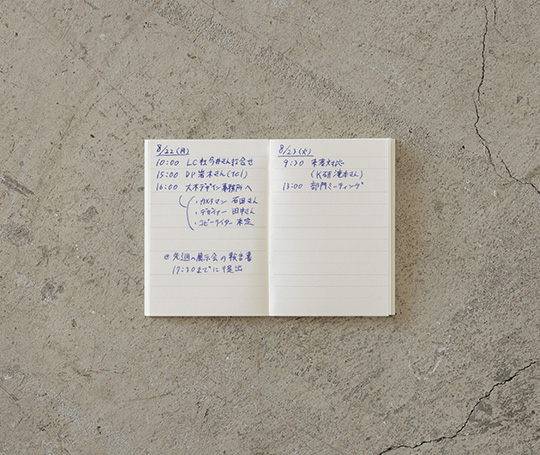 8/22(月)
10:00 LC社今井さん打合せ
15:00 DP 岩本さん(tel)
16:00 大木デザイン事務所へ
・カメラマン 石田さん
・デザイナー 田中さん
・コピーライター 未定
先週の展示会の報告書
17:30までに提出
8/23(火)
9:30 来客対応
(K研 滝本さん)
13:00 部門ミーティング